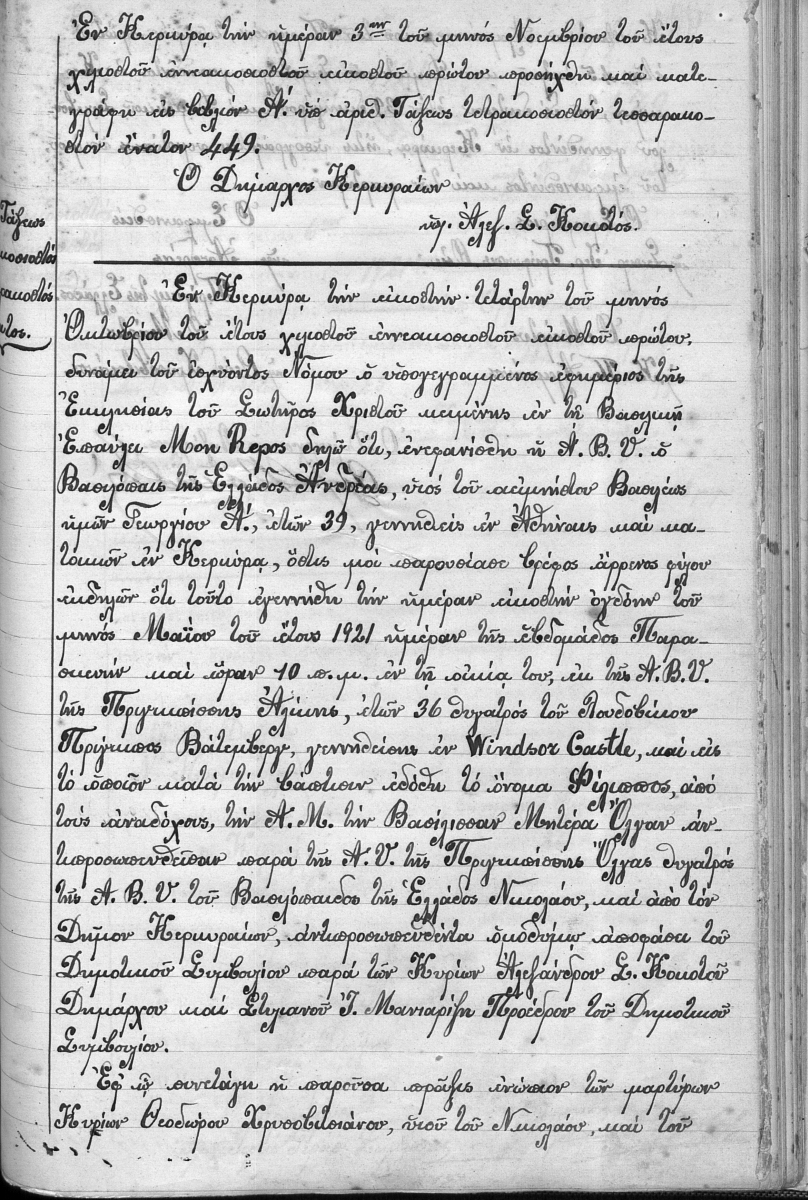 Ἐν Κερκύρᾳ τὴν ἡμέραν 3ην τοῦ μηνός Νοεμβρίου τοῦ ἔτους
χιλιοστοῦ ἐννεακοσιοστοῦ εἰκοστοῦ πρώτου προσήχθη καί κατε-
γράφη εἰς βιβλίον Α΄. ὑπ ἀριθ. Τάξεως τετρακοσιοστόν τεσσαρακο-
στόν ἔνατον 449.
Ὁ Δήμαρχος Κερκυραίων
ὑπ. Ἀλεξ. Σ. Κοκοτός.
Τάξεως
κοσιοστός
ρακοστός
τος.
Ἐν Κερκύρᾳ τήν εἰκοστήν τετάρτην τοῦ μηνός
Ὀκτωβρίου τοῦ ἔτους χιλιοστοῦ ἐννεακοσιοστοῦ εἰκοστοῦ πρώτου,
δυνάμει τοῦ ἰσχύοντος Νόμου ὁ ὑπογεγραμμένος ἐφημέριος τῆς
Ἐκκλησίας τοῦ Σωτῆρος Χριστοῦ κειμένης ἐν τῇ Βασιλικῇ
Ἐπαύλει Mon Repos δηλῶ ὅτι, ἐνεφανίσθη ἡ Α. Β. Υ. ὁ
Βασιλόπαις τῆς Ἑλλάδος Ἀνδρέας, υἱός τοῦ ἀειμνήστου Βασιλέως
ἡμῶν Γεωργίου Α΄., ἐτῶν 39, γεννηθείς ἐν Ἀθήναις καί κα-
τοικῶν ἐν Κερκύρᾳ, ὅστις μοί παρουσίασε βρέφος ἄρρενος φύλου
ἐκδηλῶν ὅτι τοῦτο ἐγεννήθη τήν ἡμέραν εἰκοστήν ὀγδόην τοῦ
μηνός Μαΐου τοῦ ἔτους 1921 ἡμέραν τῆς ἑβδομάδος Παρα-
σκευήν καί ὥραν 10 π. μ. ἐν τῇ οἰκίᾳ του, ἐκ τῆς Α. Β. Υ.
τῆς Πριγκιπίσσης Ἀλίκης, ἐτῶν 36 θυγατρός τοῦ Λουδοβίκου
Πρίγκιπος Βάτεμβεργ, γεννηθείσης ἐν Windsor Castle, καί εἰς
τό ὁποῖον κατά τήν βάπτισιν ἐδόθη τό ὄνομα Φίλιππος, ἀπό
τούς ἀναδόχους, τήν Α. Μ. τήν Βασίλισσαν Μητέρα Ὄλγαν ἀν-
τιπροσωπευθεῖσαν παρά τῆς Α. Υ. τῆς Πριγκιπίσσης Ὄλγας θυγατρός
τῆς Α. Β. Υ. τοῦ Βασιλόπαιδος τῆς Ἑλλάδος Νικολάου, καί ἀπό τόν
Δῆμον Κερκυραίων, ἀντιπροσωπευθέντα ὁμοθύμῳ ἀποφάσει τοῦ
Δημοτικοῦ Συμβουλίου παρά τῶν Κυρίων Ἀλεξάνδρου Σ. Κοκοτοῦ
Δημάρχου καί Στυλιανοῦ Ἰ. Μανιαρίζη Προέδρου τοῦ Δημοτικοῦ
Συμβουλίου.
Ἐφ ᾧ συνετάγη ἡ παροῦσα πρᾶξις ἐνώπιον τῶν μαρτύρων
Κυρίων Θεοδώρου Χρυσοβιτσιάνου, υἱοῦ τοῦ Νικολάου, καί τοῦ